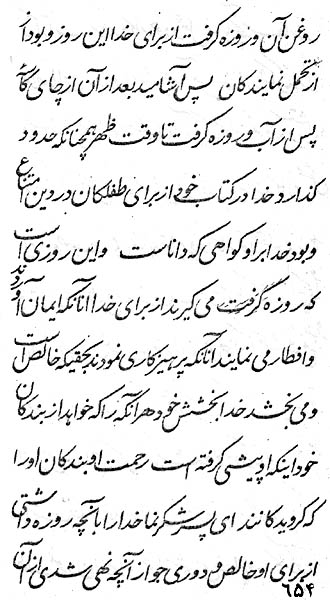 روغن آن و روزه گرفت از برای خدا این روز و بود از
از تحمل نمایندکان پس آشامید بعد از آن از چای گاهی
پس از آب و روزه گرفت تا وقت ظهر همچنانکه حدود
کذارد خدا در کتاب خود از برای طفلکان در دین امتناع
و بود خدا بر او کواهی که دانا است و این روزی است
که روزه گرفت می گیرند از برای خدا آنانکه ایمان آوردند
و افطار می نمایند آنانکه پرهیزکاری نمودند بحقیکه خالص است
و می بخشد خدا بخشش خود هر آنکه را که خواهد از بندکان
خود اینکه او پیشی گرفته است رحمت او بندکان او را
که گرویدکانند ای پسر شکر نما خدا را با آنچه روزه داشتی
از برای او خالص و دوری جو از آنچه نهی شدی از آن
۶۵۴